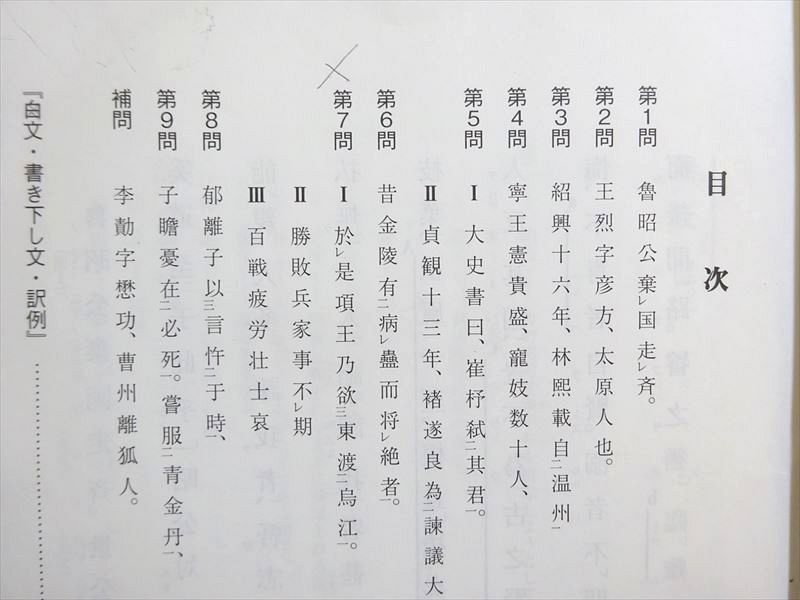 目次
第1問 魯昭公棄レ国走レ斉。
第2問 王烈字彦方、太原人也。
第3問 紹興十六年、林熙載自二温州一
第4問 寧王憲貴盛、寵妓数十人、
第5問 Ⅰ 大史書曰、崔杼弑二其君一。
Ⅱ 貞観十三年、褚遂良為二諫議大
第6問 昔金陵有二病レ蠱而将レ絶者一。
第7問 Ⅰ 於レ是項王乃欲三東渡二烏江一。
Ⅱ 勝敗兵家事不レ期
Ⅲ 百戦疲労壮士哀
第8問 郁離子以三言忤二于時一、
第9問 子瞻憂在二必死一。嘗服二青金丹一、
補問 李勣字懋功、曹州離狐人。
『白文・書き下し文・訳例』……………………